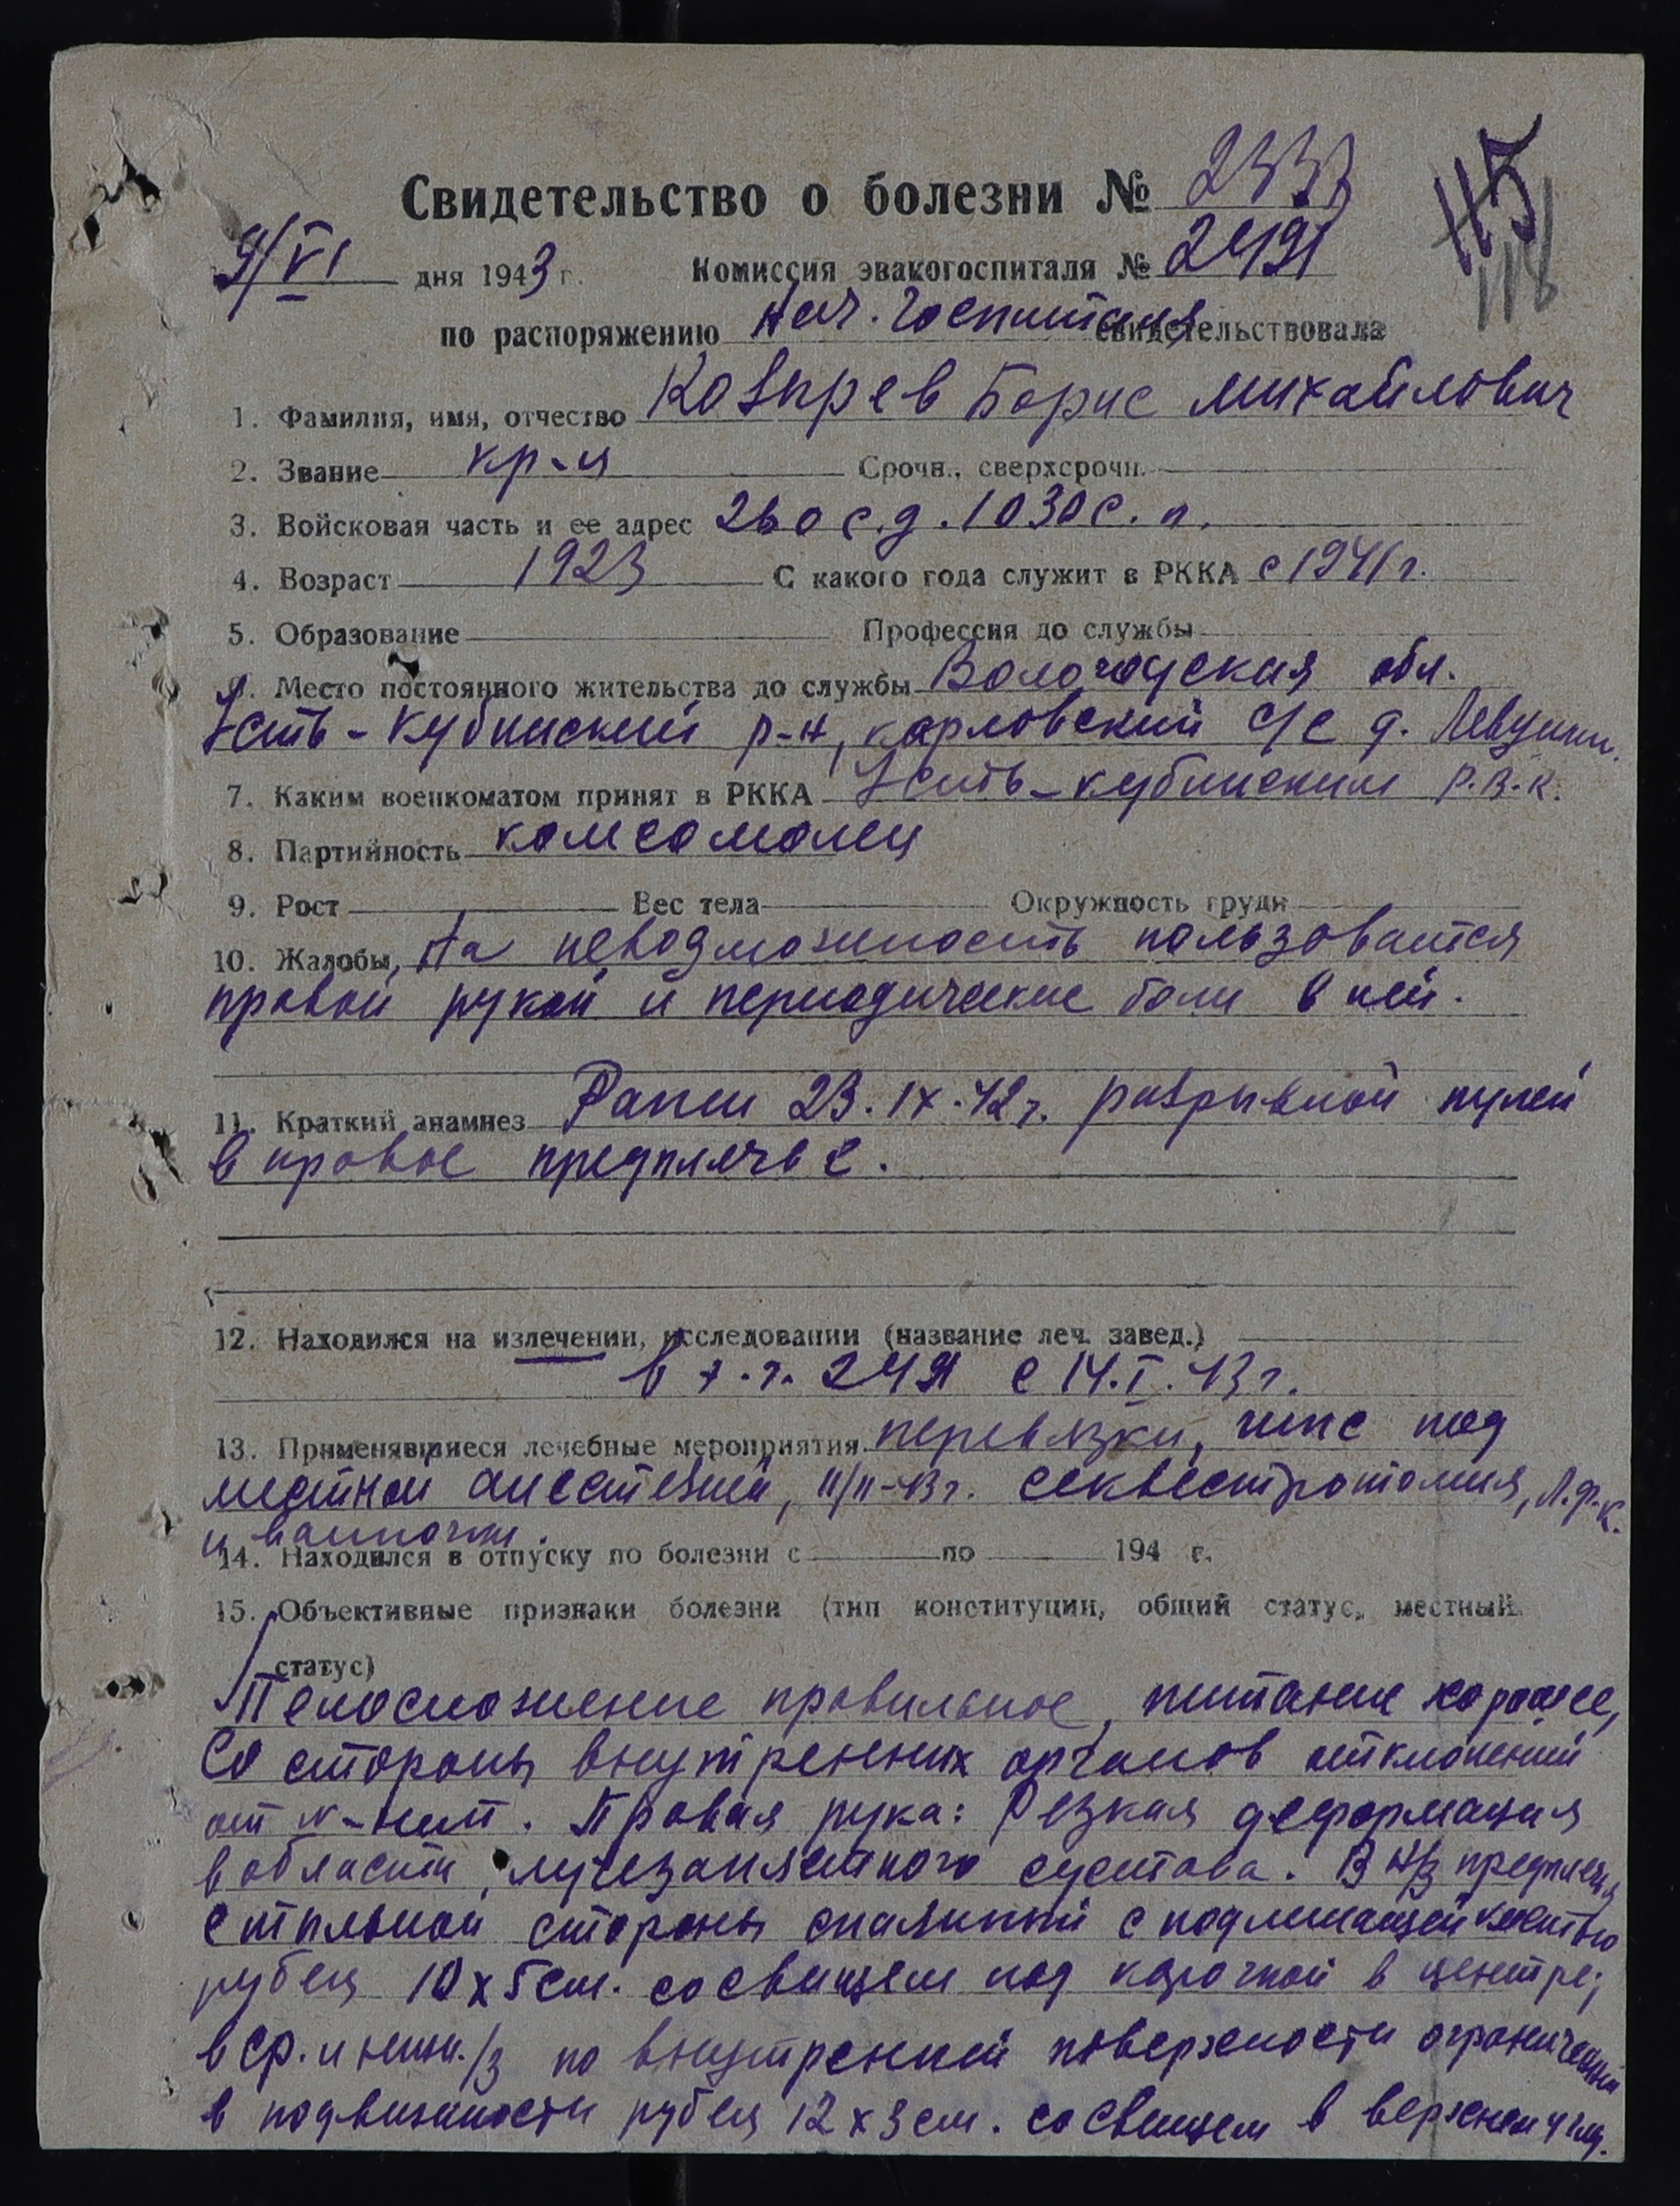 115
118
Свидетельство о болезни № 2333
9/VI дня 1943 г. Комиссия эвакогоспиталя № 2491
по распоряжению нач. госпиталя свидетельствовала
1. Фамилия, имя, отчество Козырев Борис Михайлович
2. Звание кр-ц Срочн., сверхсрочн.
3. Войсковая часть и ее адрес 260 с.д. 1030 с.п.
4. Возраст 1923 С какого года служит в РККА с 1941 г.
5. Образование Профессия до службы
6. Место постоянного жительства до службы Вологодская обл.
Усть-Кубинский р-н, Карловский с/с д. Левушк.
7. Каким военкоматом принят в РККА Усть-Кубинским Р.В.К.
8. Партийность комсомолец
9. Рост Вес тела Окружность груди
10. Жалобы, На невозможность пользоватся
правой рукой и периодические боли в ней.
11. Краткий анамнез Ранен 23.IX.42 г. разрывной пулей
в правое предплечье.
12. Находился на излечении, исследовании (название леч. завед.)
в э.г. 2491 с 14.I.43 г.
13. Применявшиеся лечебные мероприятия перевязки, гипс под
местной анестезией, 11/II-43 г. секвестротомия, Л.ф.к.
и ванночки.
14. Находился в отпуску по болезни с по 194 г.
15. Объективные признаки болезни (тип конституции, общий статус, местный
статус)
Телосложение правильное, питание хорошее,
Со стороны внутренних органов отклонений
от N-нет. Правая рука: Резкая деформация
в области лучезапястного сустава. В н/з предплечья
с тыльной стороны спаянный с подлежащей костью
рубец 10 х 5 см. со свищем под корочкой в центре;
в ср. и нижн./з по внутренней поверхности ограниченный
в подвижности рубец 12 х 3 см. со свищем в верхнем углу.